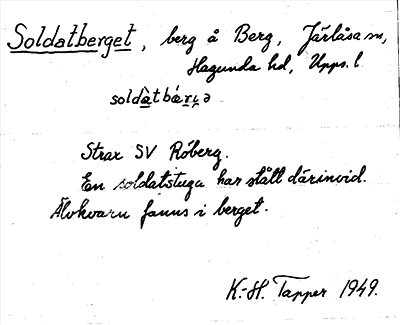 Soldatberget, berg å Berg, Järlåsa sn,
Hagunda hd, Upps. l.
soldàtbæ̀rjə
Strax SV Röberg.
En soldatstuga har stått därinvid.
Älvkvarn fanns i berget.
K.-H. Tapper 1949.